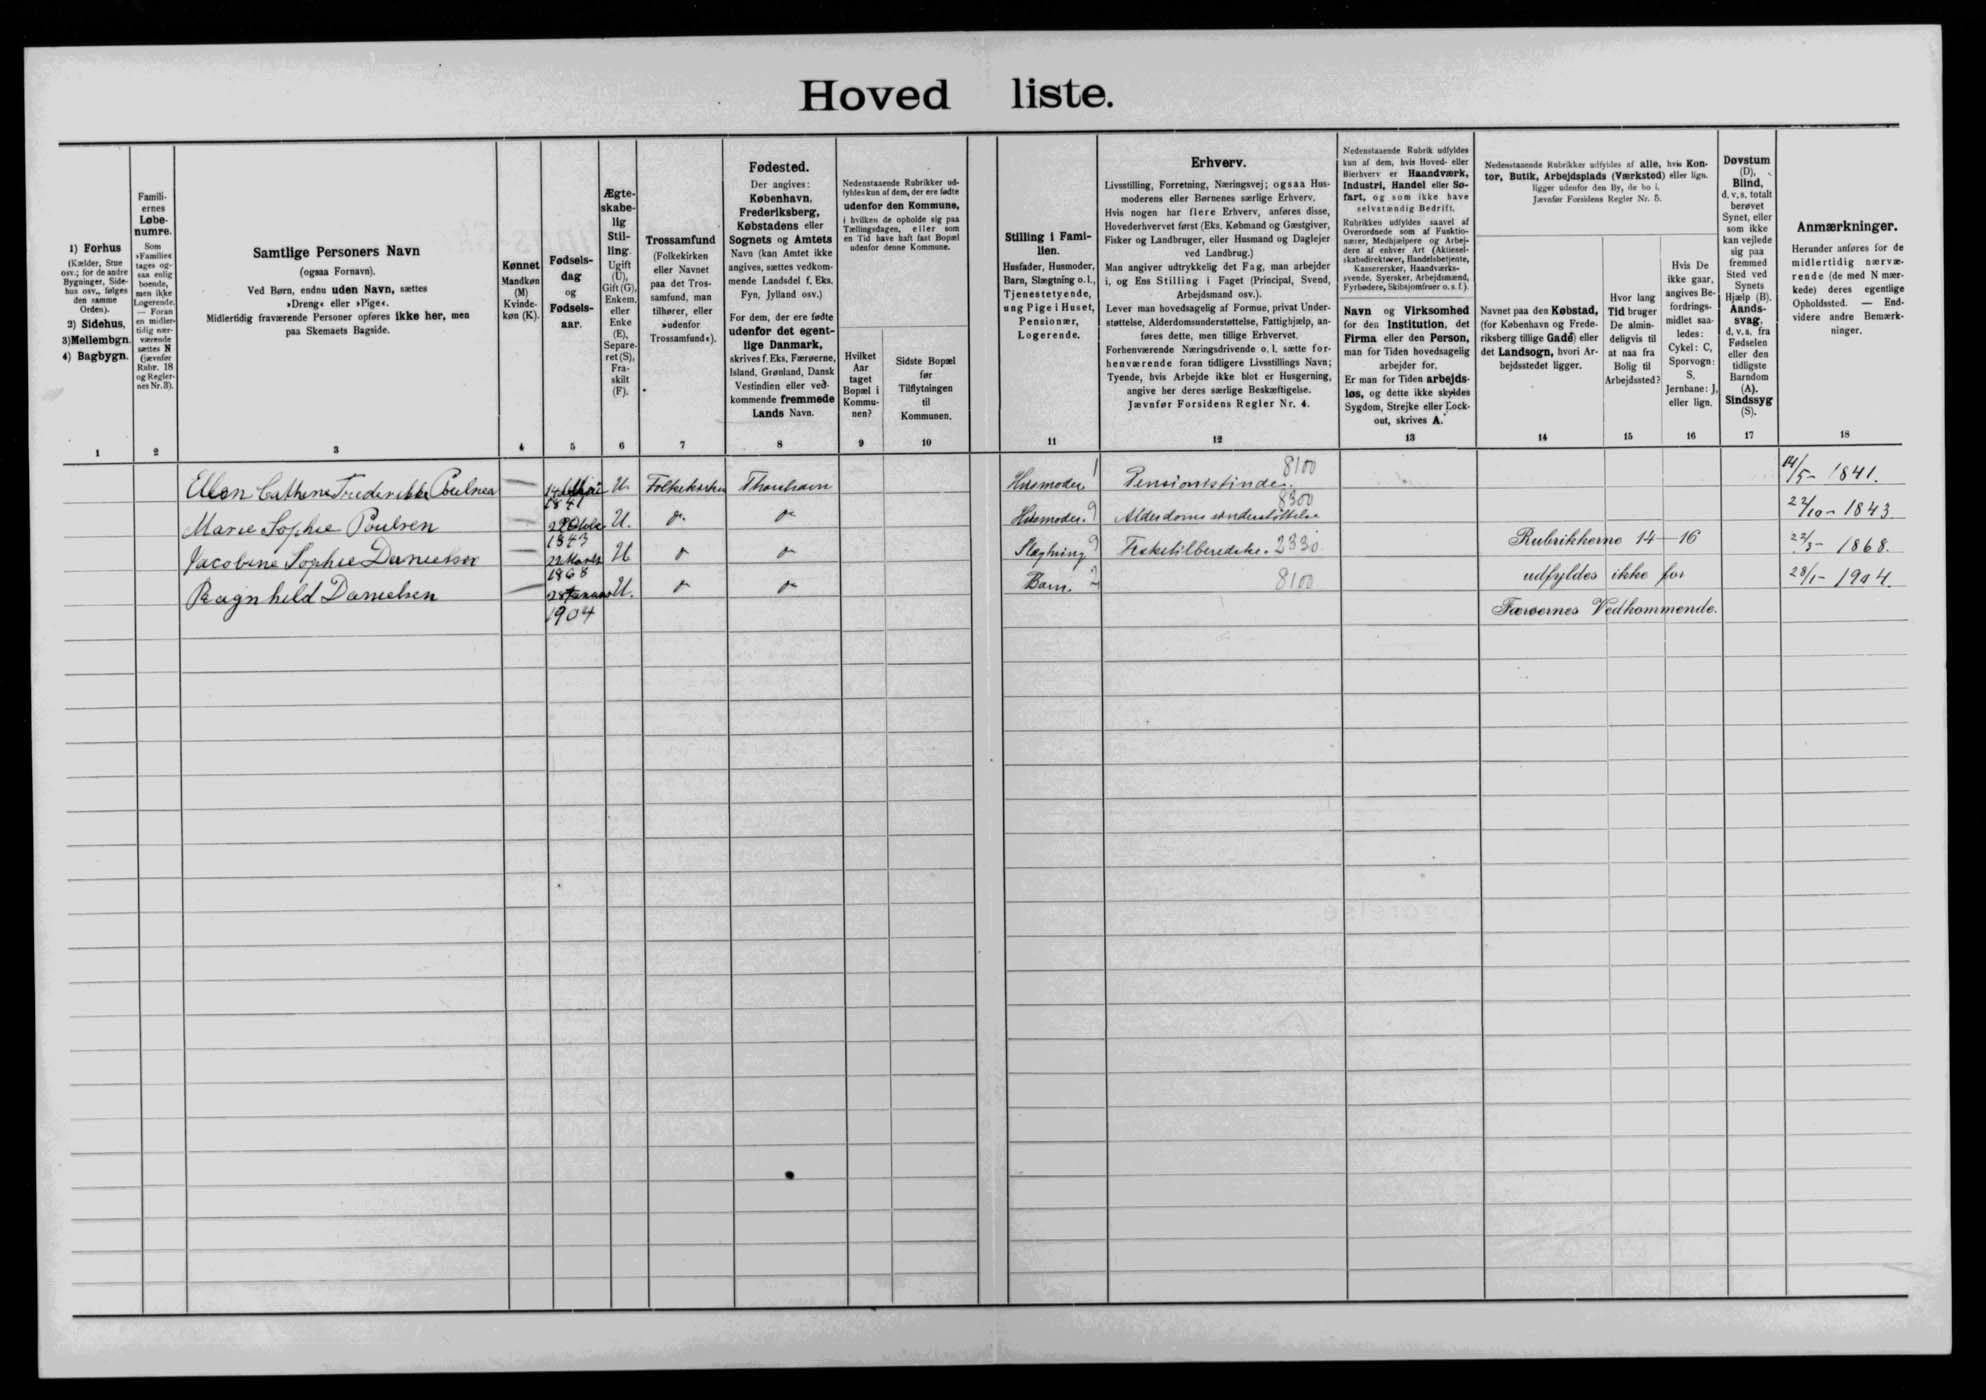 Hoved liste.
1) Forhus
(Kælder, Stue
osv.; for de andre
Bygninger, Side-
hus osv., følges
den samme
Orden).
2) Sidehus,
3) Mellembgn.
4) Bagbygn.
Famili-
ernes
Løbe-
numre.
Som
»Familie«
tages og-
saa enlig
boende,
men ikke
Logerende.
— Foran
en midler-
tidig nær-
værende
sættes N
(jævnfør
Rubr. 18
og Regler-
nes Nr. 3).
Samtlige Personers Navn
(ogsaa Fornavn).
Ved Børn, endnu uden Navn, sættes
»Dreng« eller »Pige«.
Midlertidig fraværende Personer opføres ikke her, men
paa Skemaets Bagside.
Kønnet
Mandkøn
(M)
Kvinde-
køn (K).
Fødsels-
dag
og
Fødsels-
aar.
Ægte-
skabe-
lig
Stil-
ling.
Ugift
(U),
Gift (G),
Enkem.
eller
Enke
(E),
Separe-
ret (S),
Fra-
skilt
(F).
Trossamfund
(Folkekirken
eller Navnet
paa det Tros-
samfund, man
tilhører, eller
»udenfor
Trossamfund«).
Fødested.
Der angives:
København,
Frederiksberg,
Købstadens eller
Sognets og Amtets
Navn (kan Amtet ikke
angives, sættes vedkom-
mende Landsdel f. Eks.
Fyn, Jylland osv.)
For dem, der ere fødte
udenfor det egent-
lige Danmark,
skrives f. Eks. Færøerne,
Island, Grønland, Dansk
Vestindien eller ved-
kommende fremmede
Lands Navn.
Nedenstaaende Rubrikker ud-
fyldes kun af dem, der ere fødte
udenfor den Kommune,
i hvilken de opholde sig paa
Tællingsdagen, eller som
en Tid have haft fast Bopæl
udenfor denne Kommune.
Hvilket
Aar
taget
Bopæl i
Kommu-
nen?
Sidste Bopæl
før
Tilflytningen
til
Kommunen.
Stilling i Fami-
lien.
Husfader, Husmoder,
Barn, Slægtning o. l.,
Tjenestetyende,
ung Pige i Huset,
Pensionær,
Logerende.
Erhverv.
Livsstilling, Forretning, Næringsvej; ogsaa Hus-
moderens eller Børnenes særlige Erhverv.
Hvis nogen har flere Erhverv, anføres disse,
Hovederhvervet først (Eks. Købmand og Gæstgiver,
Fisker og Landbruger, eller Husmand og Daglejer
ved Landbrug.)
Man angiver udtrykkelig det Fag, man arbejder
i, og Ens Stilling i Faget (Principal, Svend,
Arbejdsmand osv.).
Lever man hovedsagelig af Formue, privat Under-
støttelse, Alderdomsunderstøttelse, Fattighjælp, an-
føres dette, men tillige Erhvervet.
Forhenværende Næringsdrivende o. l. sætte for-
henværende foran tidligere Livsstillings Navn;
Tyende, hvis Arbejde ikke blot er Husgerning,
angive her deres særlige Beskæftigelse.
Jævnfør Forsidens Regler Nr. 4.
Nedenstaaende Rubrik udfyldes
kun af dem, hvis Hoved- eller
Bierhverv er Haandværk,
Industri, Handel eller Sø-
fart, og som ikke have
selvstændig Bedrift.
Rubrikken udfyldes saavel af
Overordnede som af Funktio-
nærer, Medhjælpere og Arbej-
dere af enhver Art (Aktiesel-
skabsdirektører, Handelsbetjente,
Kasserersker, Haandværks-
svende, Syersker, Arbejdsmænd,
Fyrbødere, Skibsjomfruer o. s. f.).
Navn og Virksomhed
for den Institution, det
Firma eller den Person,
man for Tiden hovedsagelig
arbejder for.
Er man for Tiden arbejds-
løs, og dette ikke skyldes
Sygdom, Strejke eller Lock-
out, skrives A.
Nedenstaaende Rubrikker udfyldes af alle, hvis Kon-
tor, Butik, Arbejdsplads (Værksted) eller lign.
ligger udenfor den By, de bo i.
Jævnfør Forsidens Regler Nr. 5.
Navnet paa den Købstad,
(for København og Frede-
riksberg tillige Gade) eller
det Landsogn, hvori Ar-
bejdsstedet ligger.
Hvor lang
Tid bruger
De almin-
deligvis til
at naa fra
Bolig til
Arbejdssted?
Hvis De
ikke gaar,
angives Be-
fordrings-
midlet saa-
ledes:
Cykel: C,
Sporvogn:
S,
Jernbane: J,
eller lign.
Døvstum
(D),
Blind,
d. v. s. totalt
berøvet
Synet, eller
som ikke
kan vejlede
sig paa
fremmed
Sted ved
Synets
Hjælp (B),
Aands-
svag,
d. v. s. fra
Fødselen
eller den
tidligste
Barndom
(A).
Sindssyg
(S).
Anmærkninger.
Herunder anføres for de
midlertidig nærvæ-
rende (de med N mær-
kede) deres egentlige
Opholdssted. — End-
videre andre Bemærk-
ninger.
1 2 3 4 5 6 7 8 9 10 11 12 13 14 15 16 17 18
Ellen Cathrine Frederikke Poulsen — 1841 U Folkekirken Thorshavn Husmoder 1 Pensionistinde. 8100 14/5- 1841.
Marie Sophie Poulsen — 22 Oktbr 1843 U. do do Husmoder. 9 Alderdomsunderstøttelse 8300 22/10- 1843
Jacobine Sophie Danielsen — 22 Marts 1868 U do do Slægtning 9 Fisketilberedelse. 2330 Rubrikkerne 14-16 22/3- 1868.
Ragnhild Danielsen — 28 Januar 1904 U. do do Barn. 8100 udfyldes ikke for 28/1- 1904.
Færøernes Vedkommende.